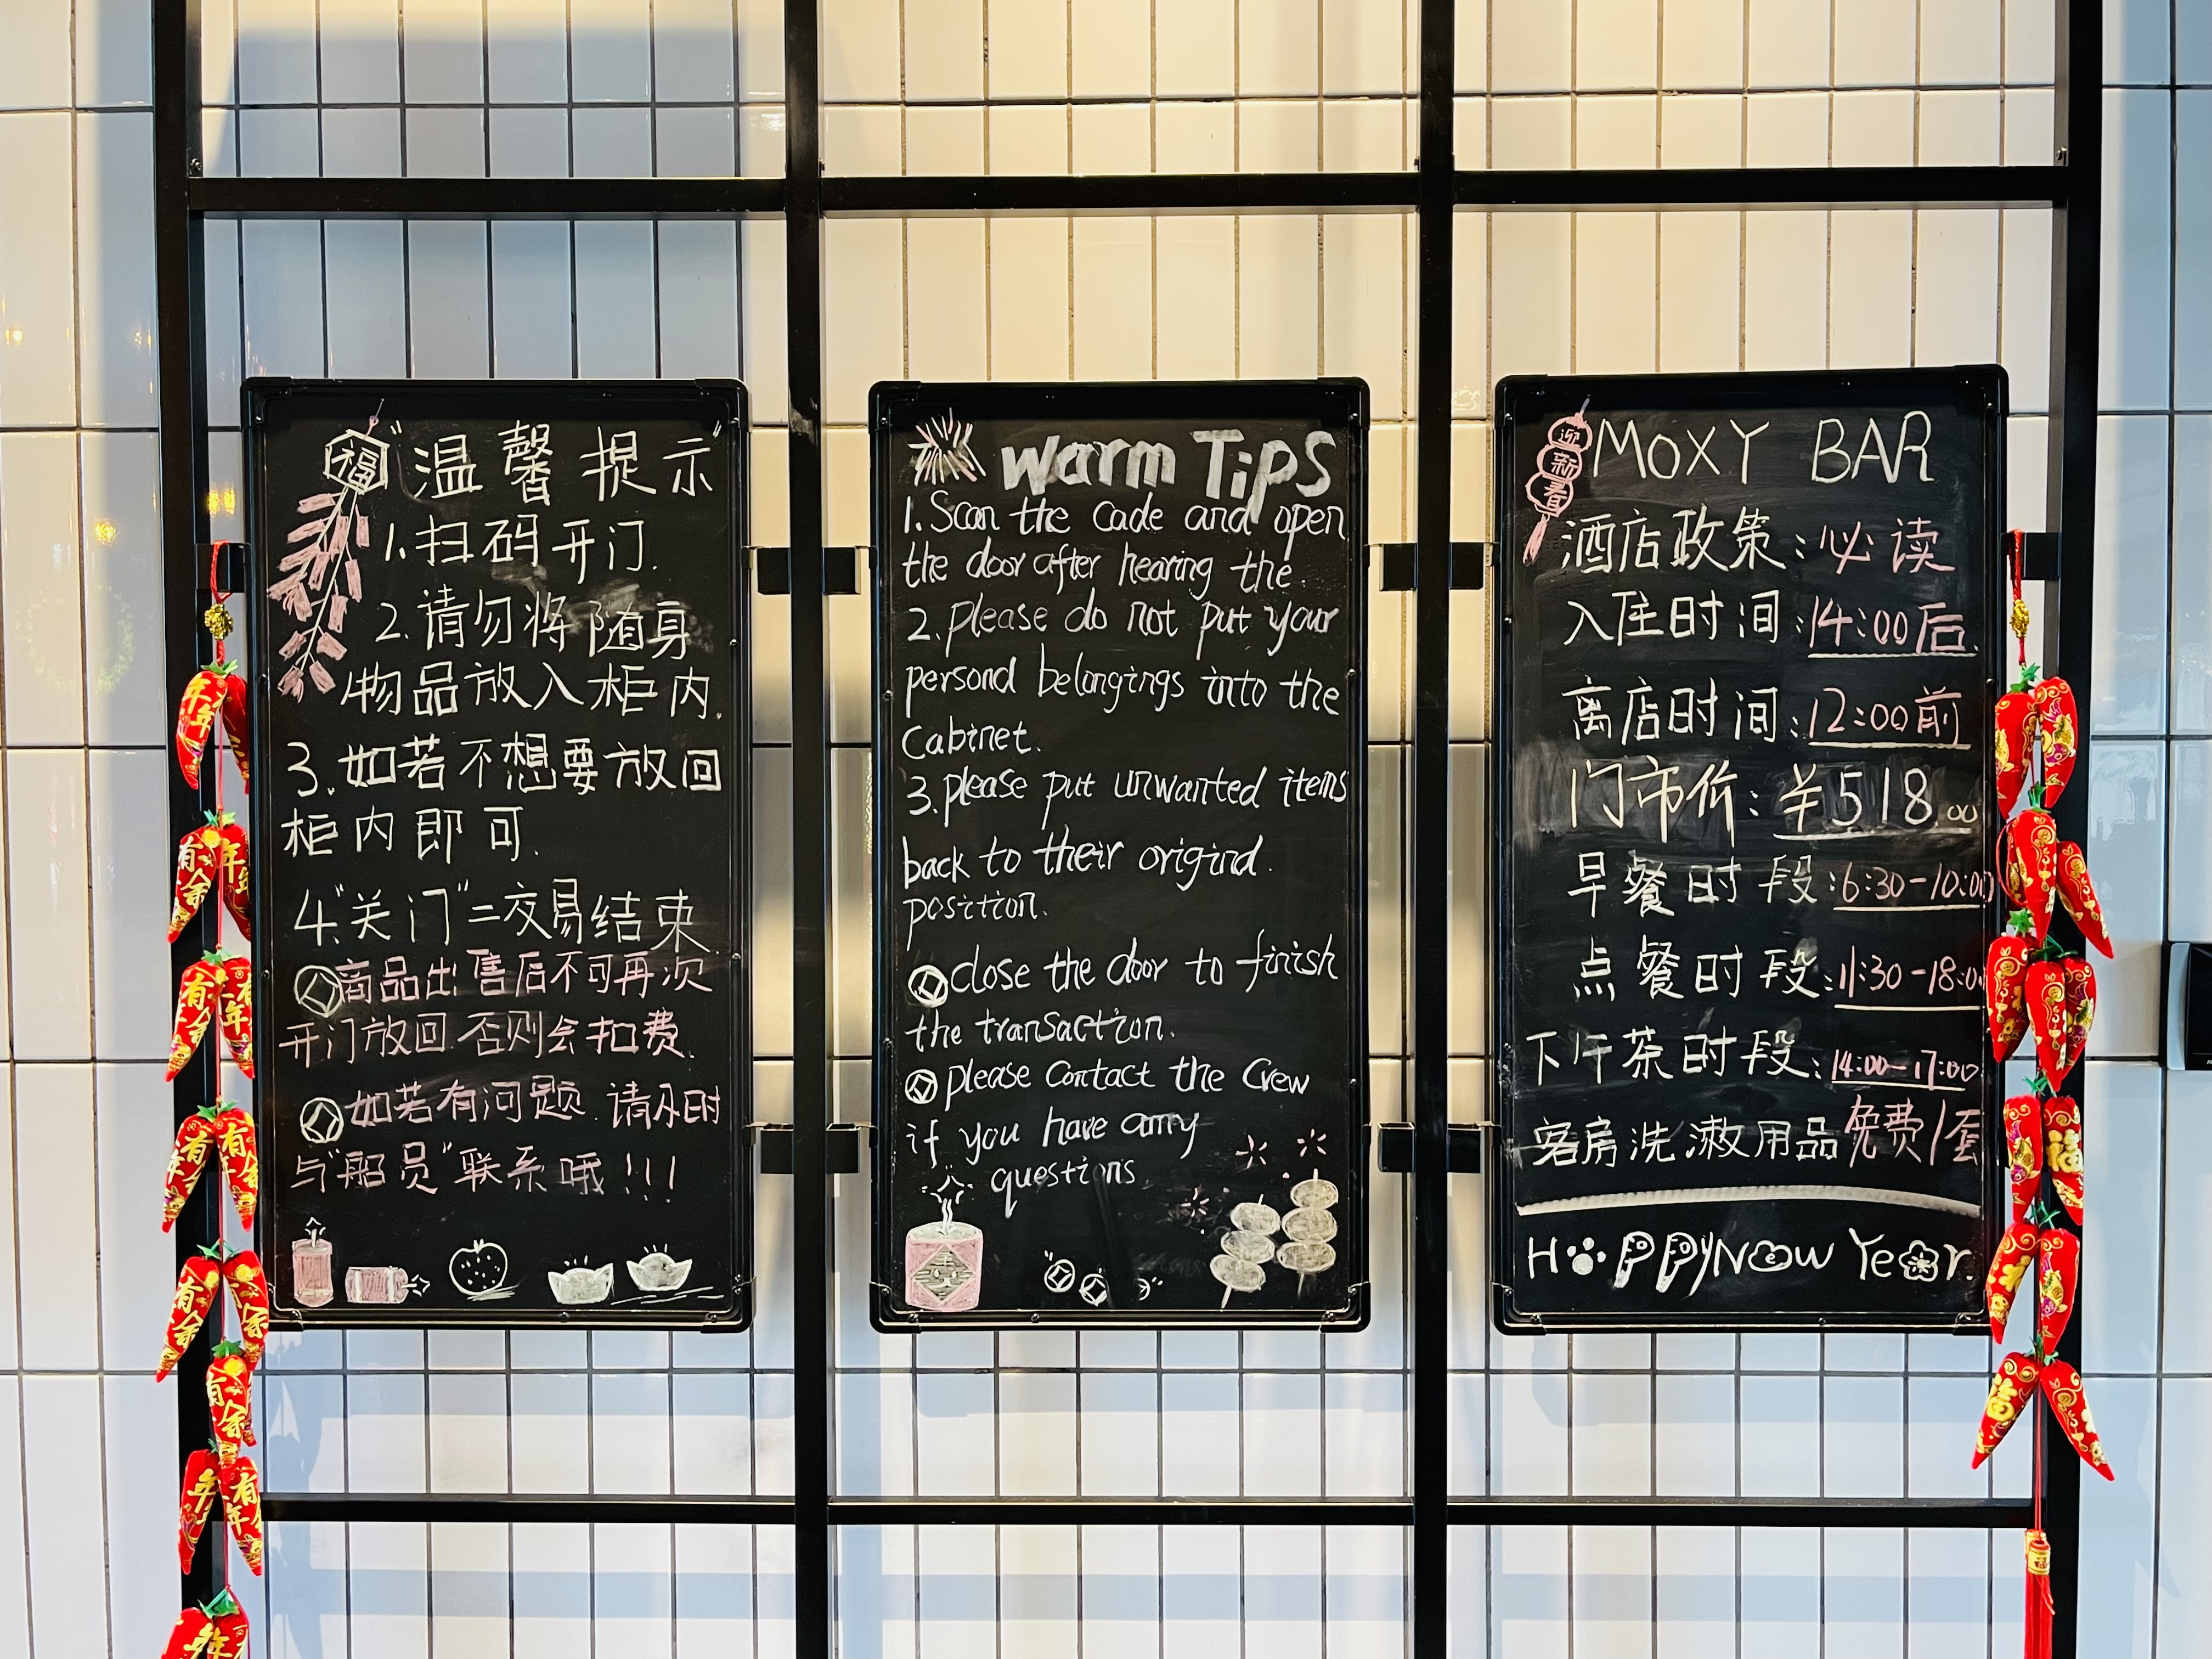 福
"温馨提示"
1.扫码开门.
2.请勿将随身
物品放入柜内.
3.如若不想要放回
柜内即可.
4."关门"=交易结束
商品出售后不可再次
开门放回.否则会扣费.
如若有问题.请及时
与"船员"联系哦!!!
warm Tips
1.Scan the cade and open
the door after hearing the
2.please do not put your
persond belongings into the
Cabinet.
3.please put unwanted items
back to their origind.
position.
close the door to finish
the transaction.
please contact the Crew
if you have amy
questions.
迎新春
MOXY BAR
酒店政策:必读
入住时间:14:00后.
离店时间:12:00前
门市价:¥518.00
早餐时段:6:30-10:00
点餐时段:11:30-18:00
下午茶时段:14:00-17:00
客房洗漱用品免费1套
HAPPY New Year.
年年
有余
年年
有余
有年
有余
年有年
福
福